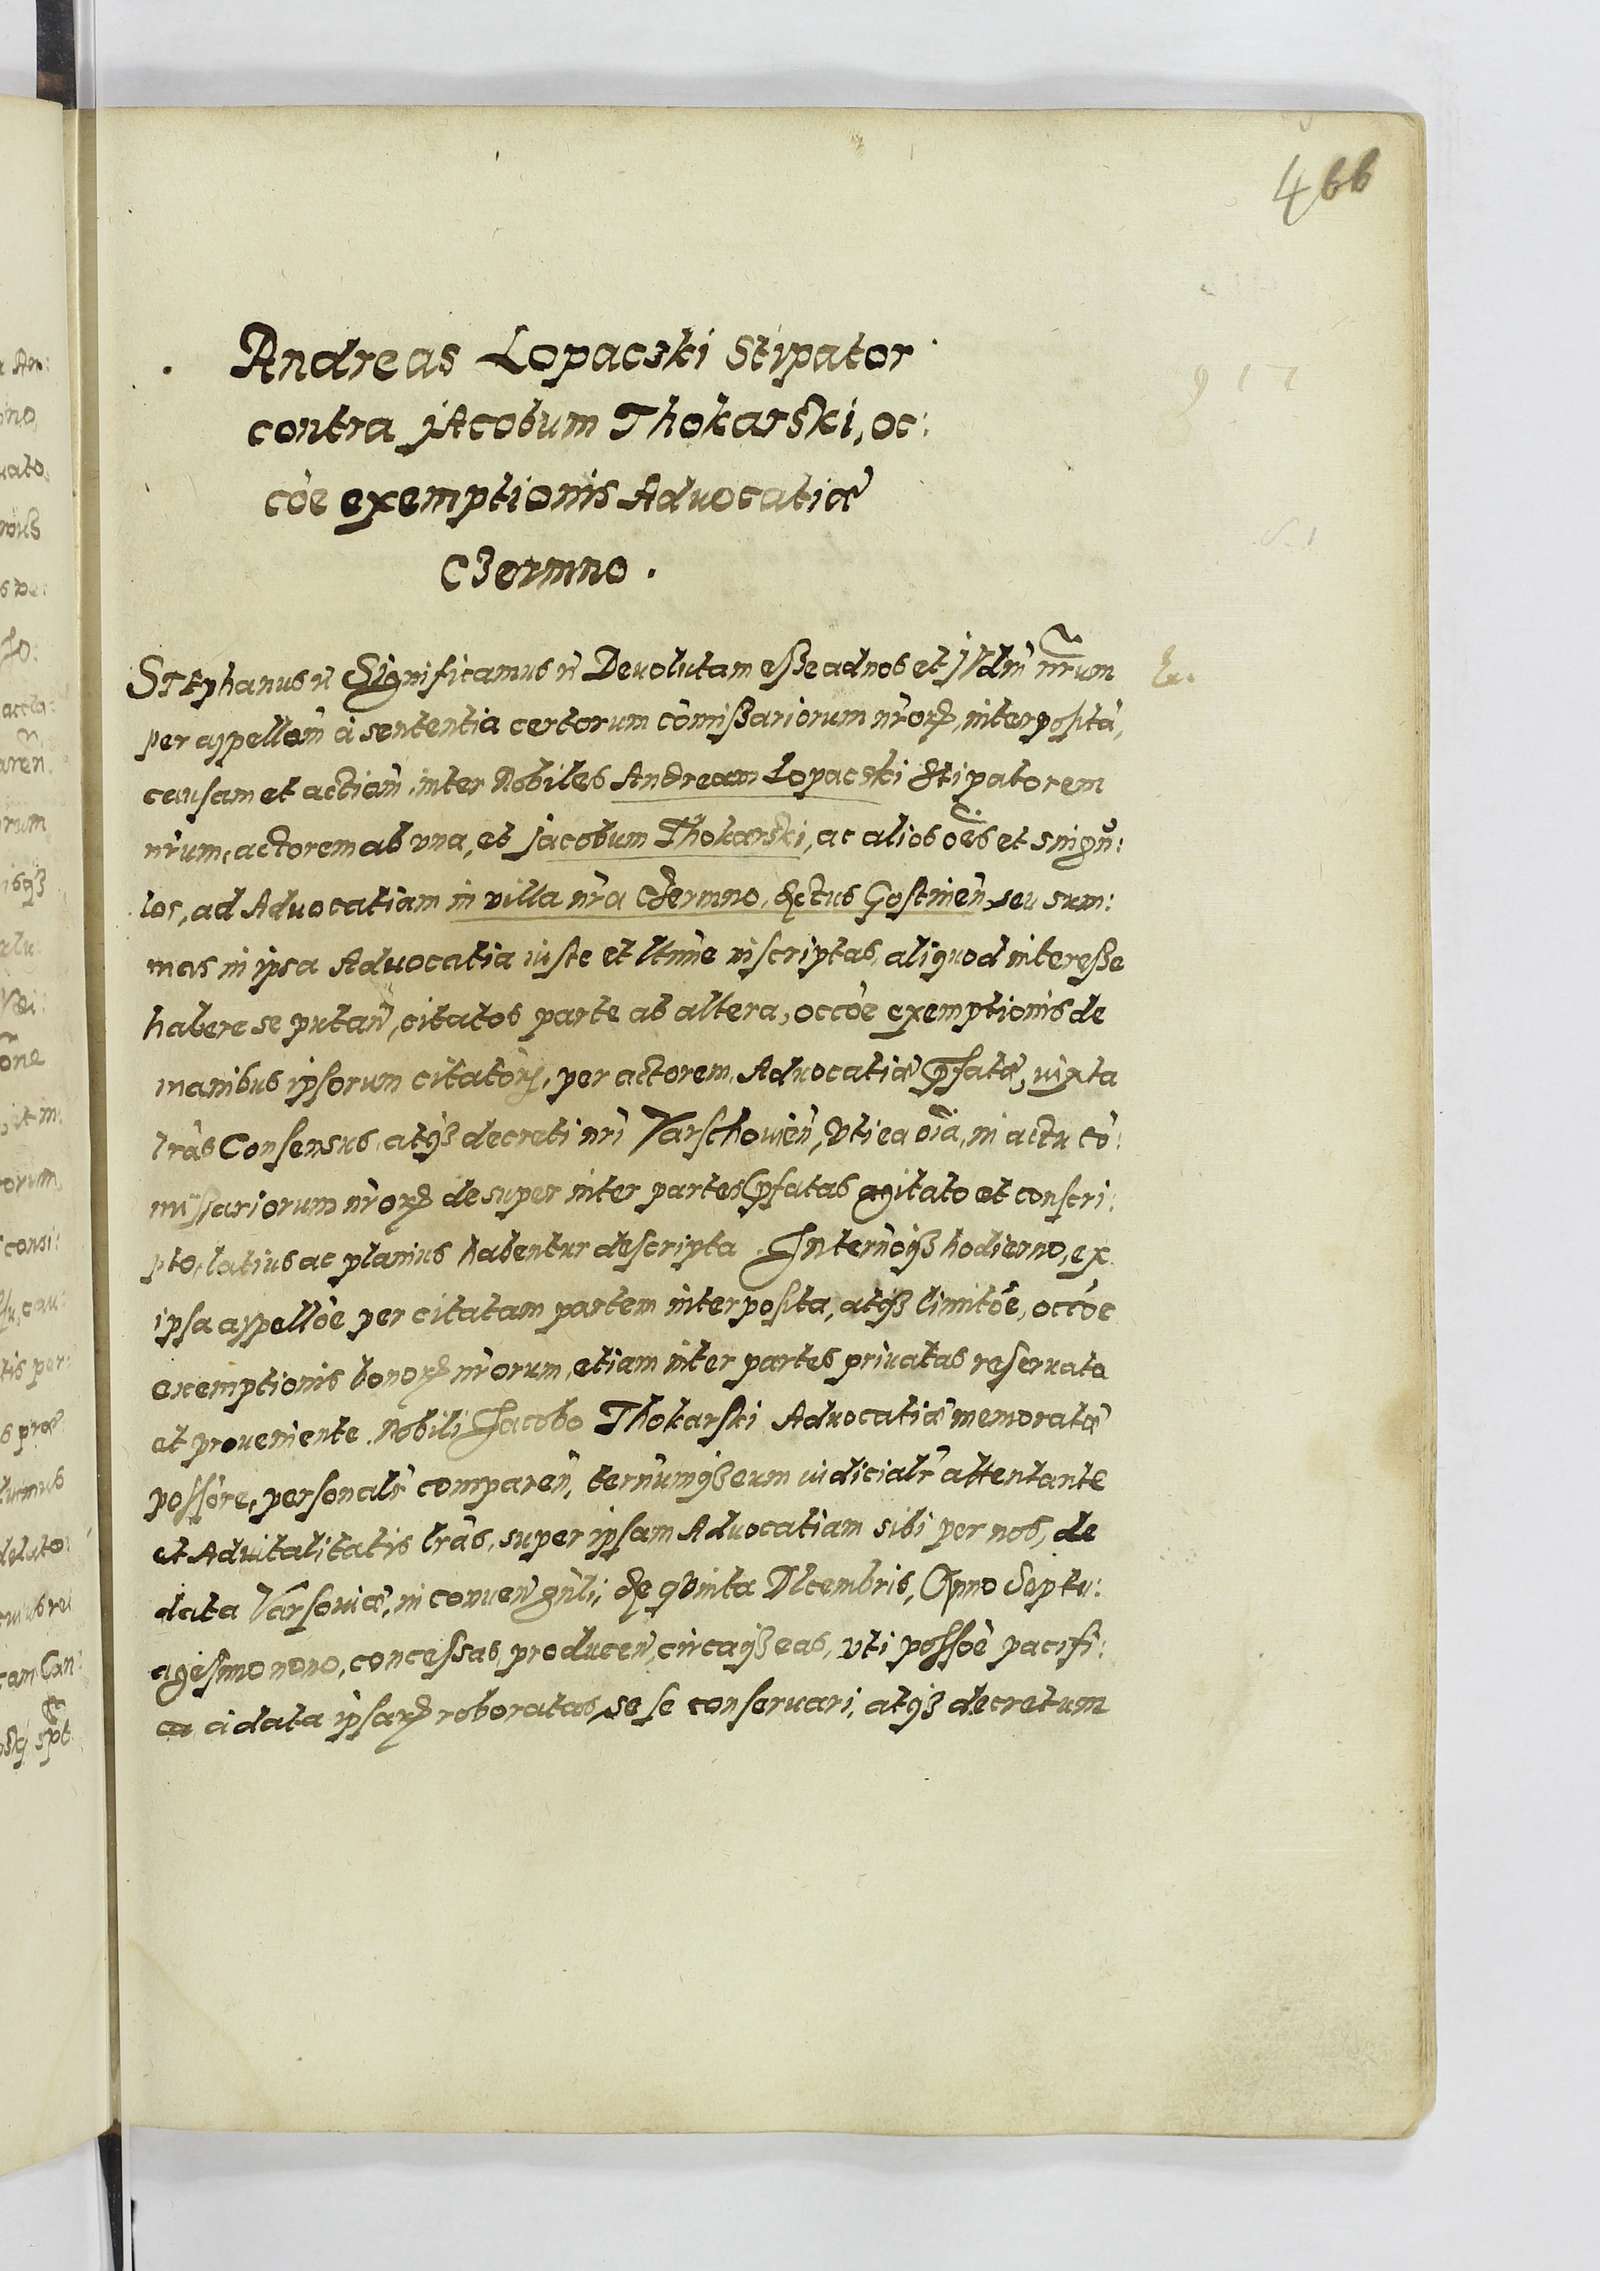 466
Andreas Lopacski Stipator
contra jAcobum Thokarski, oc:
cõe exemptionis Aduocatiæ
Czermno.
Stephanus Significamus Deuolutam esse ad nos et Jud̃m nr̃um
per appellõm à sententia certorum com̃issariorum nr̃oꝝ, interposita,
causam et actiõm, inter Nobiles Andream Lopacski Stipatorem
nr̃um, actorem ab vna, et Jacobum Thokarski, ac alios oẽs et singu:
los, ad Aduocatiam in villa nr̃a Czermno, Gostinen̄ seu sum:
mas in ipsa Aduocatia iuste et ltm̃e inscriptas, aliquod interesse
habere se putan̄, citatos parte ab altera, occõe exemptionis de
manibus ipsorum citatorꝝ, per actorem, Aduocatiæ p̃fatæ, iuxta
lr̃as Consensus, atqꝫ decreti nr̃i Varschouien̄, vti ea oĩa, in actu cõ:
missariorum nr̃oꝝ desuper inter partes p̃fatas agitato et conscri:
pto, latius ac planius habentur descripta. In ter̃noqꝫ hodierno, ex
ipsa appellõe per citatam partem interposita, atqꝫ limitõe, occõe
exemptionis bonoꝝ nr̃orum, etiam inter partes priuatas reseruata
et proueniente. Nobili Jacobo Thokarski Aduocatiæ memoratæ
possore, personalr̃ comparen̄, ter̃numqꝫ eum iudicialr̃ attentante
et Aduitalitatis lr̃as, super ipsam Aduocatiam sibi per nos, de
data Varsouiæ, in conuen̄ gñli, de quinta Decembris, Anno Septu:
agesimo nono, concessas, producen̄, circaqꝫ eas, vti possõe pacifi:
ca à data ipsaꝝ roboratas, sese conseruari, atqꝫ decretum